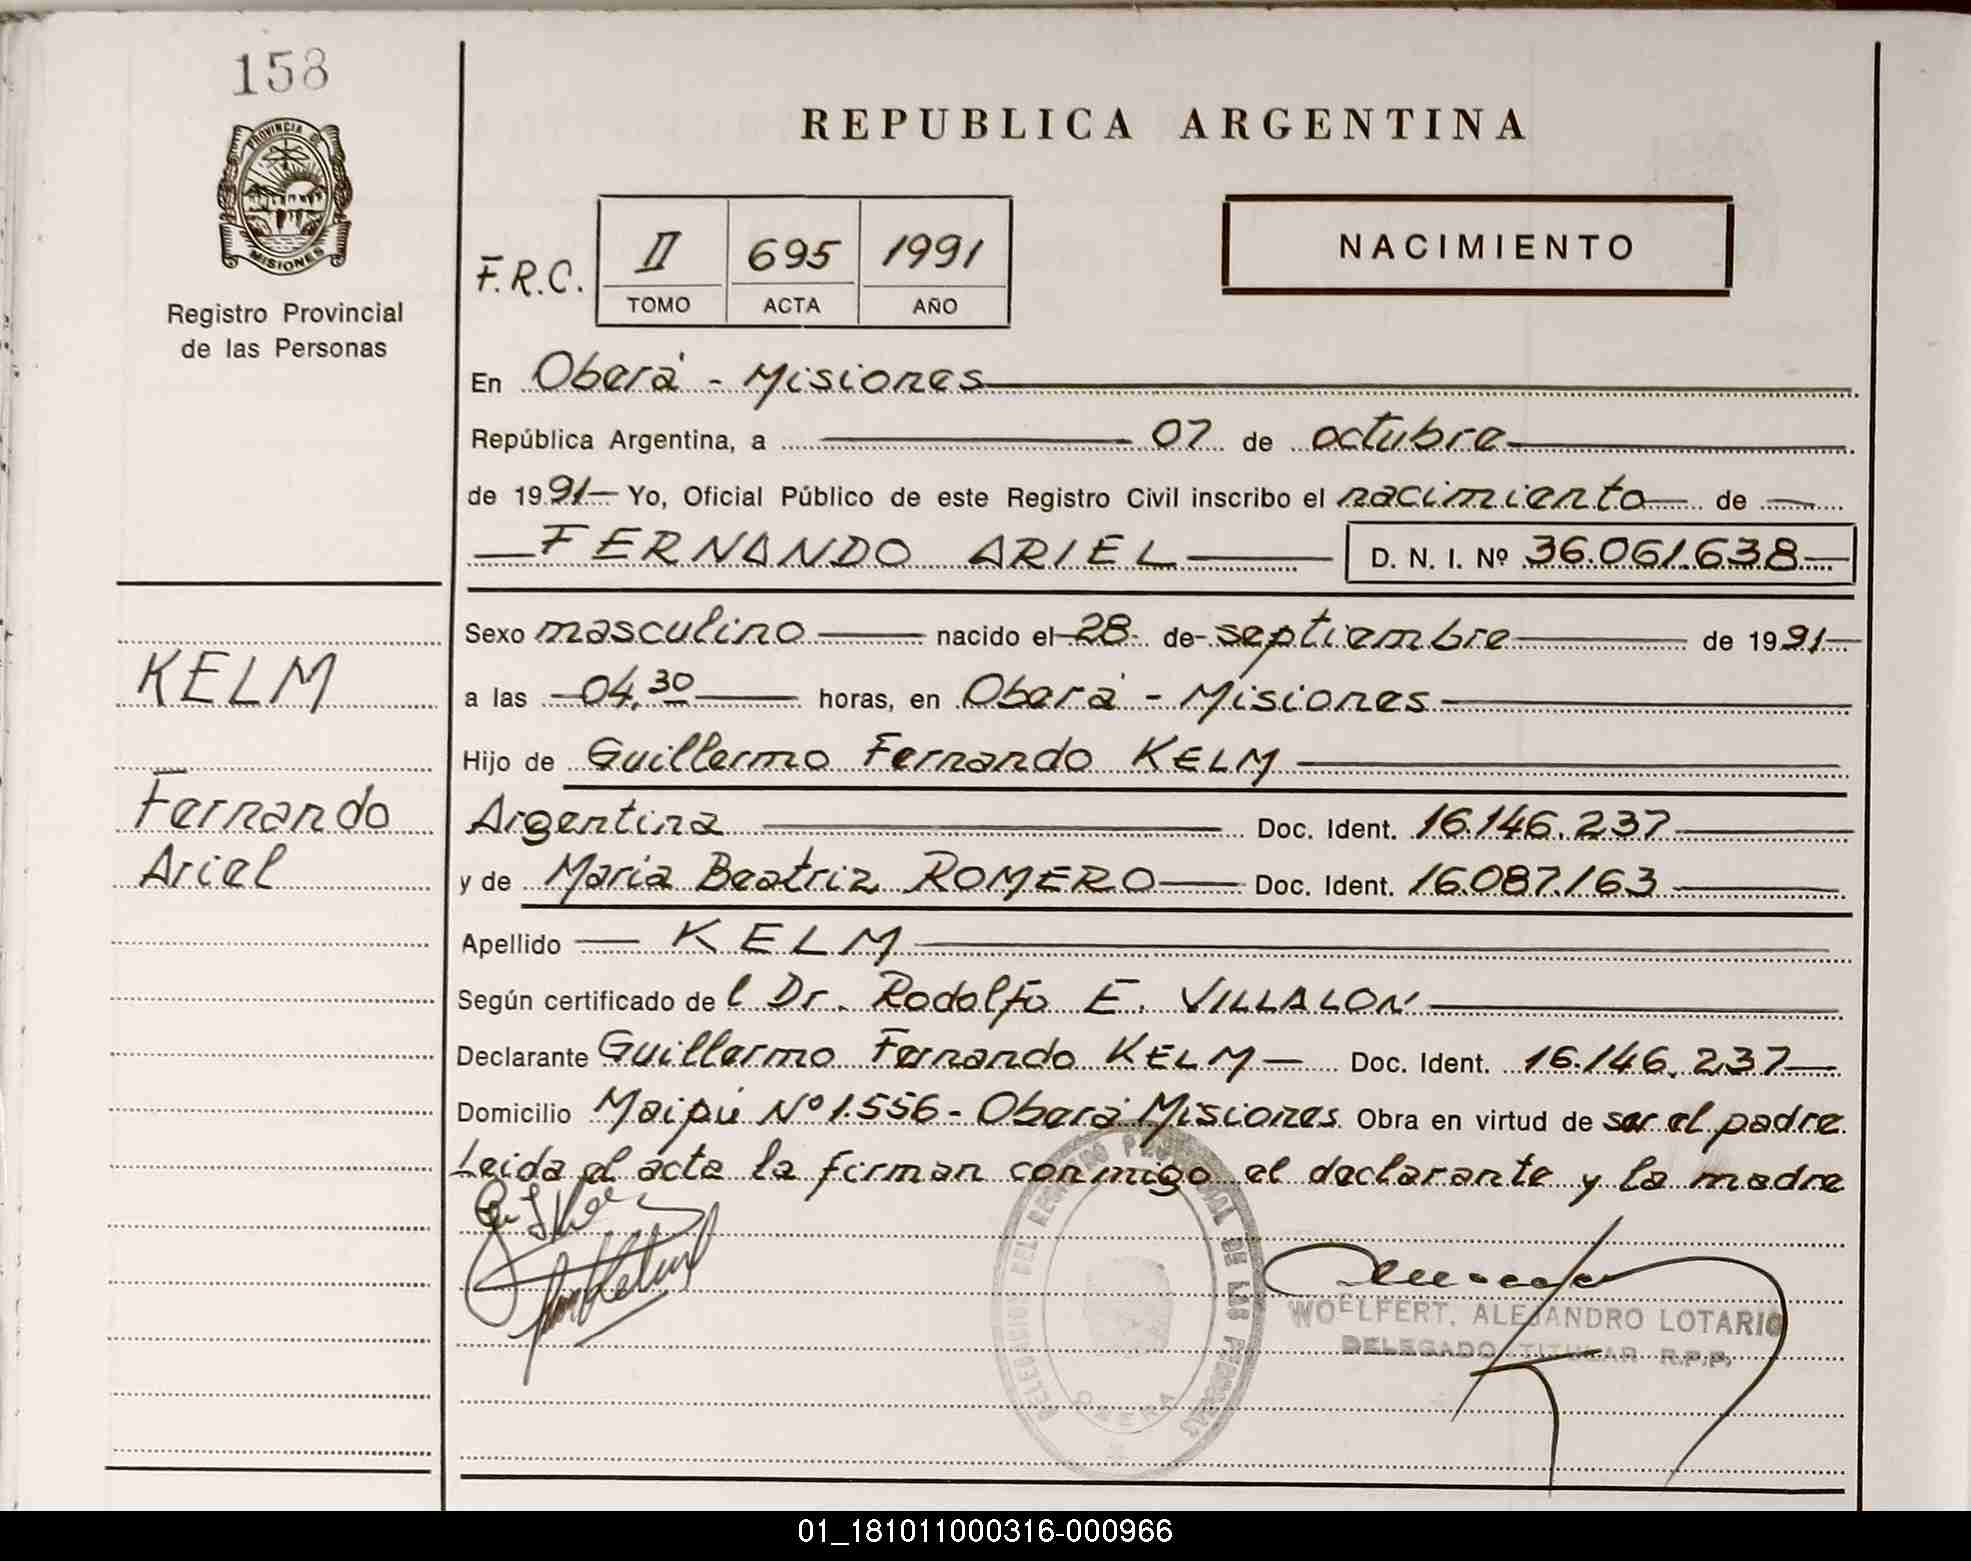 158
PROVINCIA D
MISIONES
Registro Provincial
de las Personas
REPUBLICA ARGENTINA
F.R.C.
II 695 1991
TOMO ACTA AÑO
NACIMIENTO
En Oberá - Misiones
República Argentina, a 07 de octubre
de 1991 Yo, Oficial Público de este Registro Civil inscribo el nacimiento de
FERNANDO ARIEL D. N. I. Nº 36.061.638
Sexo masculino nacido el 28 de septiembre de 1991
a las 04,30 horas, en Oberá - Misiones
Hijo de Guillermo Fernando KELM
Argentina Doc. Ident. 16.146.237
y de Maria Beatriz ROMERO Doc. Ident. 16.087.163
Apellido KELM
Según certificado del Dr. Rodolfo E. VILLALON
Declarante Guillermo Fernando KELM Doc. Ident. 16.146.237
Domicilio Maipú Nº 1.556 - Oberá Misiones Obra en virtud de ser el padre
Leida el acta la firman conmigo el declarante y la madre
KELM
Fernando
Ariel
DELEGACION DEL REGISTRO PROVINCIAL DE LAS PERSONAS
OBERA
WOELFERT, ALEJANDRO LOTARIO
DELEGADO TITULAR R.P.P.
01_181011000316-000966